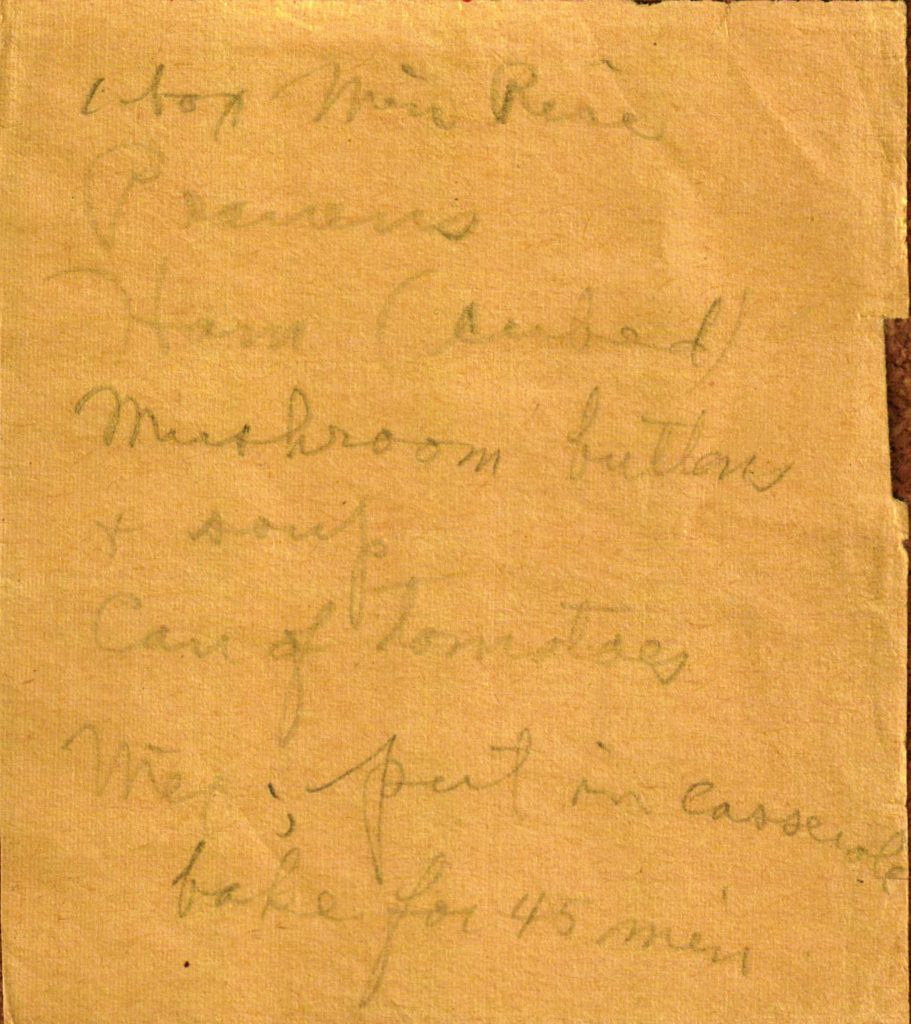 1 box Min Rice
Prawns
Ham (cubed)
Mushroom buttons
+ soup
Can of tomatoes
Mix; put in casserole
bake for 45 min